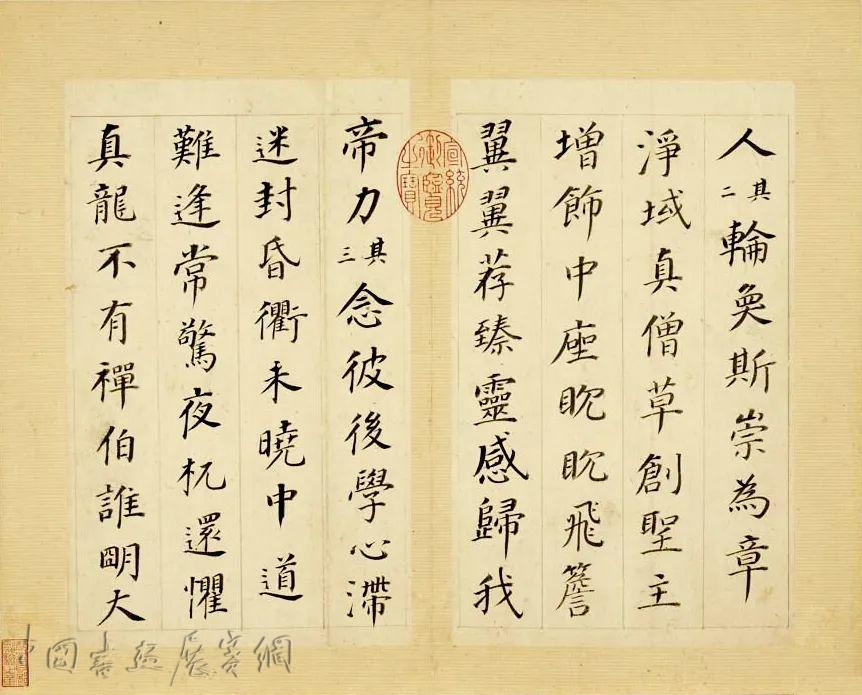 人其二輪奐斯崇為章
淨域真僧草創聖主
增飾中座眈眈飛簷
翼翼荐臻靈感歸我
帝力其三念彼後學心滯
迷封昏衢未曉中道
難逢常驚夜杌還懼
真龍不有禪伯誰眀大
宣統御覽之寶
中國書法展賽網